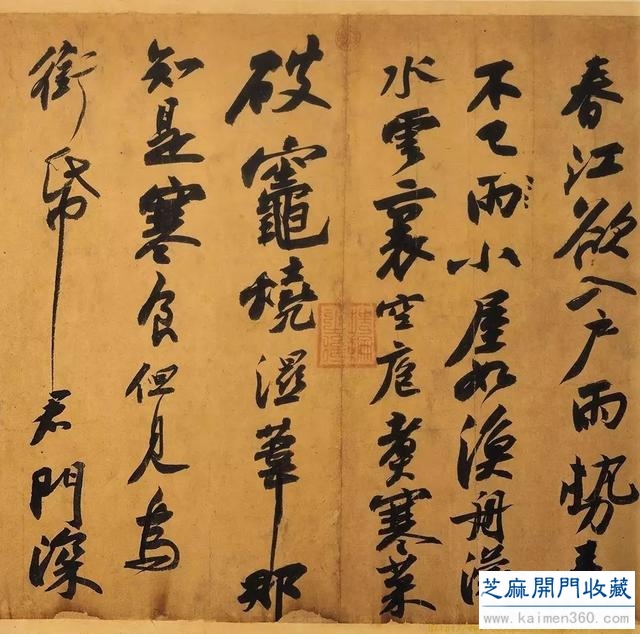 春江欲入户雨勢来
不已雨小屋如漁舟濛
水雲裏空庖煮寒菜
破竈燒濕葦那
知是寒食但見烏
銜帋君門深
芝麻開門收藏
www.kaimen360.com